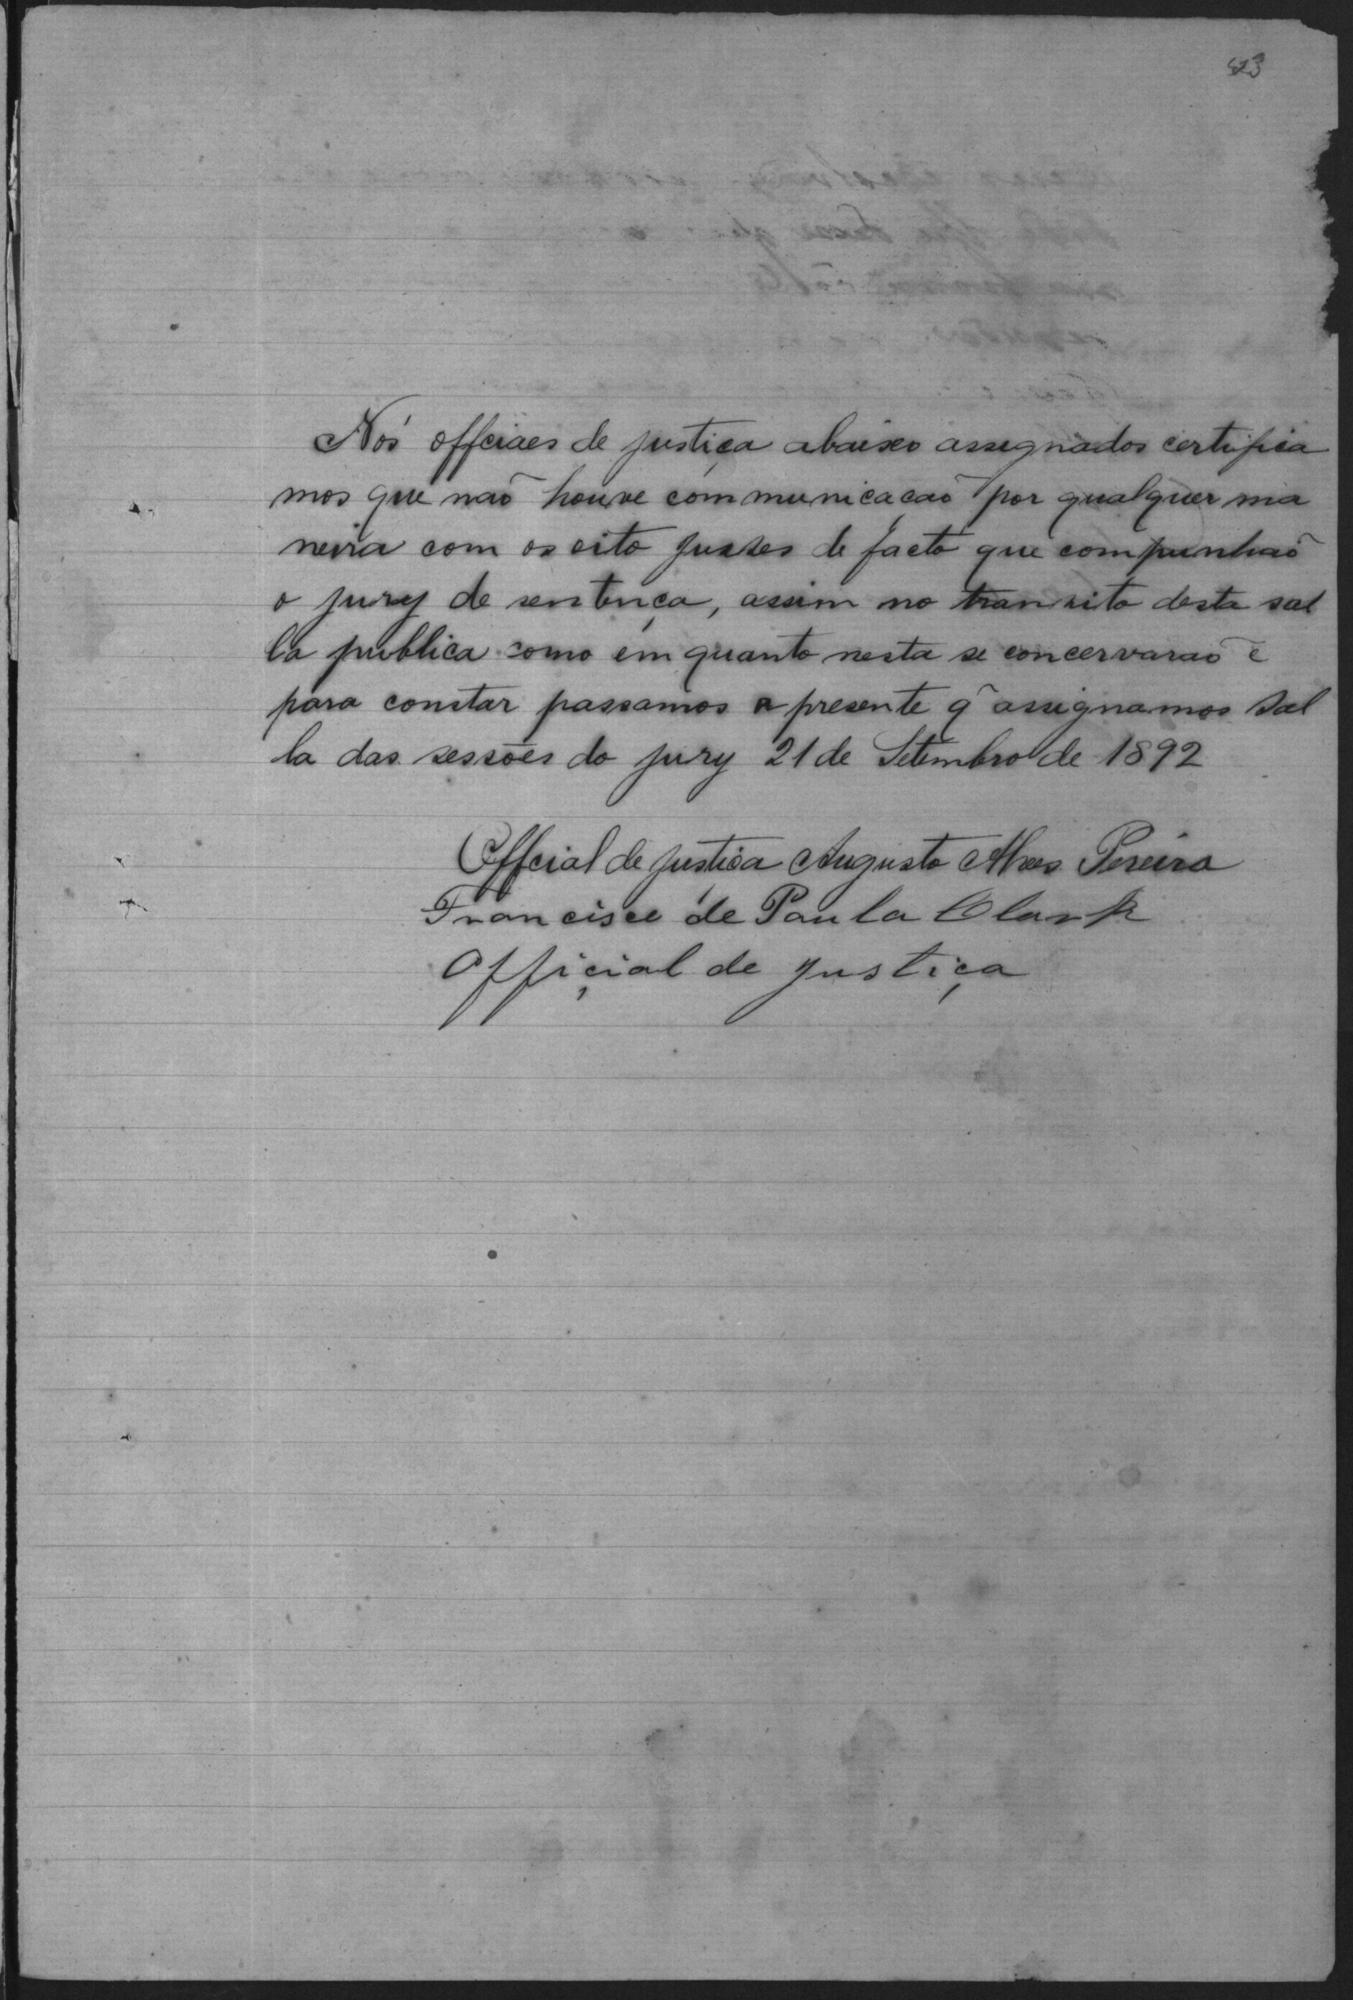 Nós officiaes de justiça abaixo assignados certifica
mos que não houve communicação por qualquer ma
neira com os oito juizes de facto que compunhaõ
o jury de sentença, assim no transito desta sal
la publica como em quanto nesta se concervaraõ e
para constar passamos a presente q̃ assignamos Sal
la das sessões do jury 21 de Setembro de 1892
Official de justiça Augusto Alves Pereira
Francisco de Paula Clark
Official de justiça